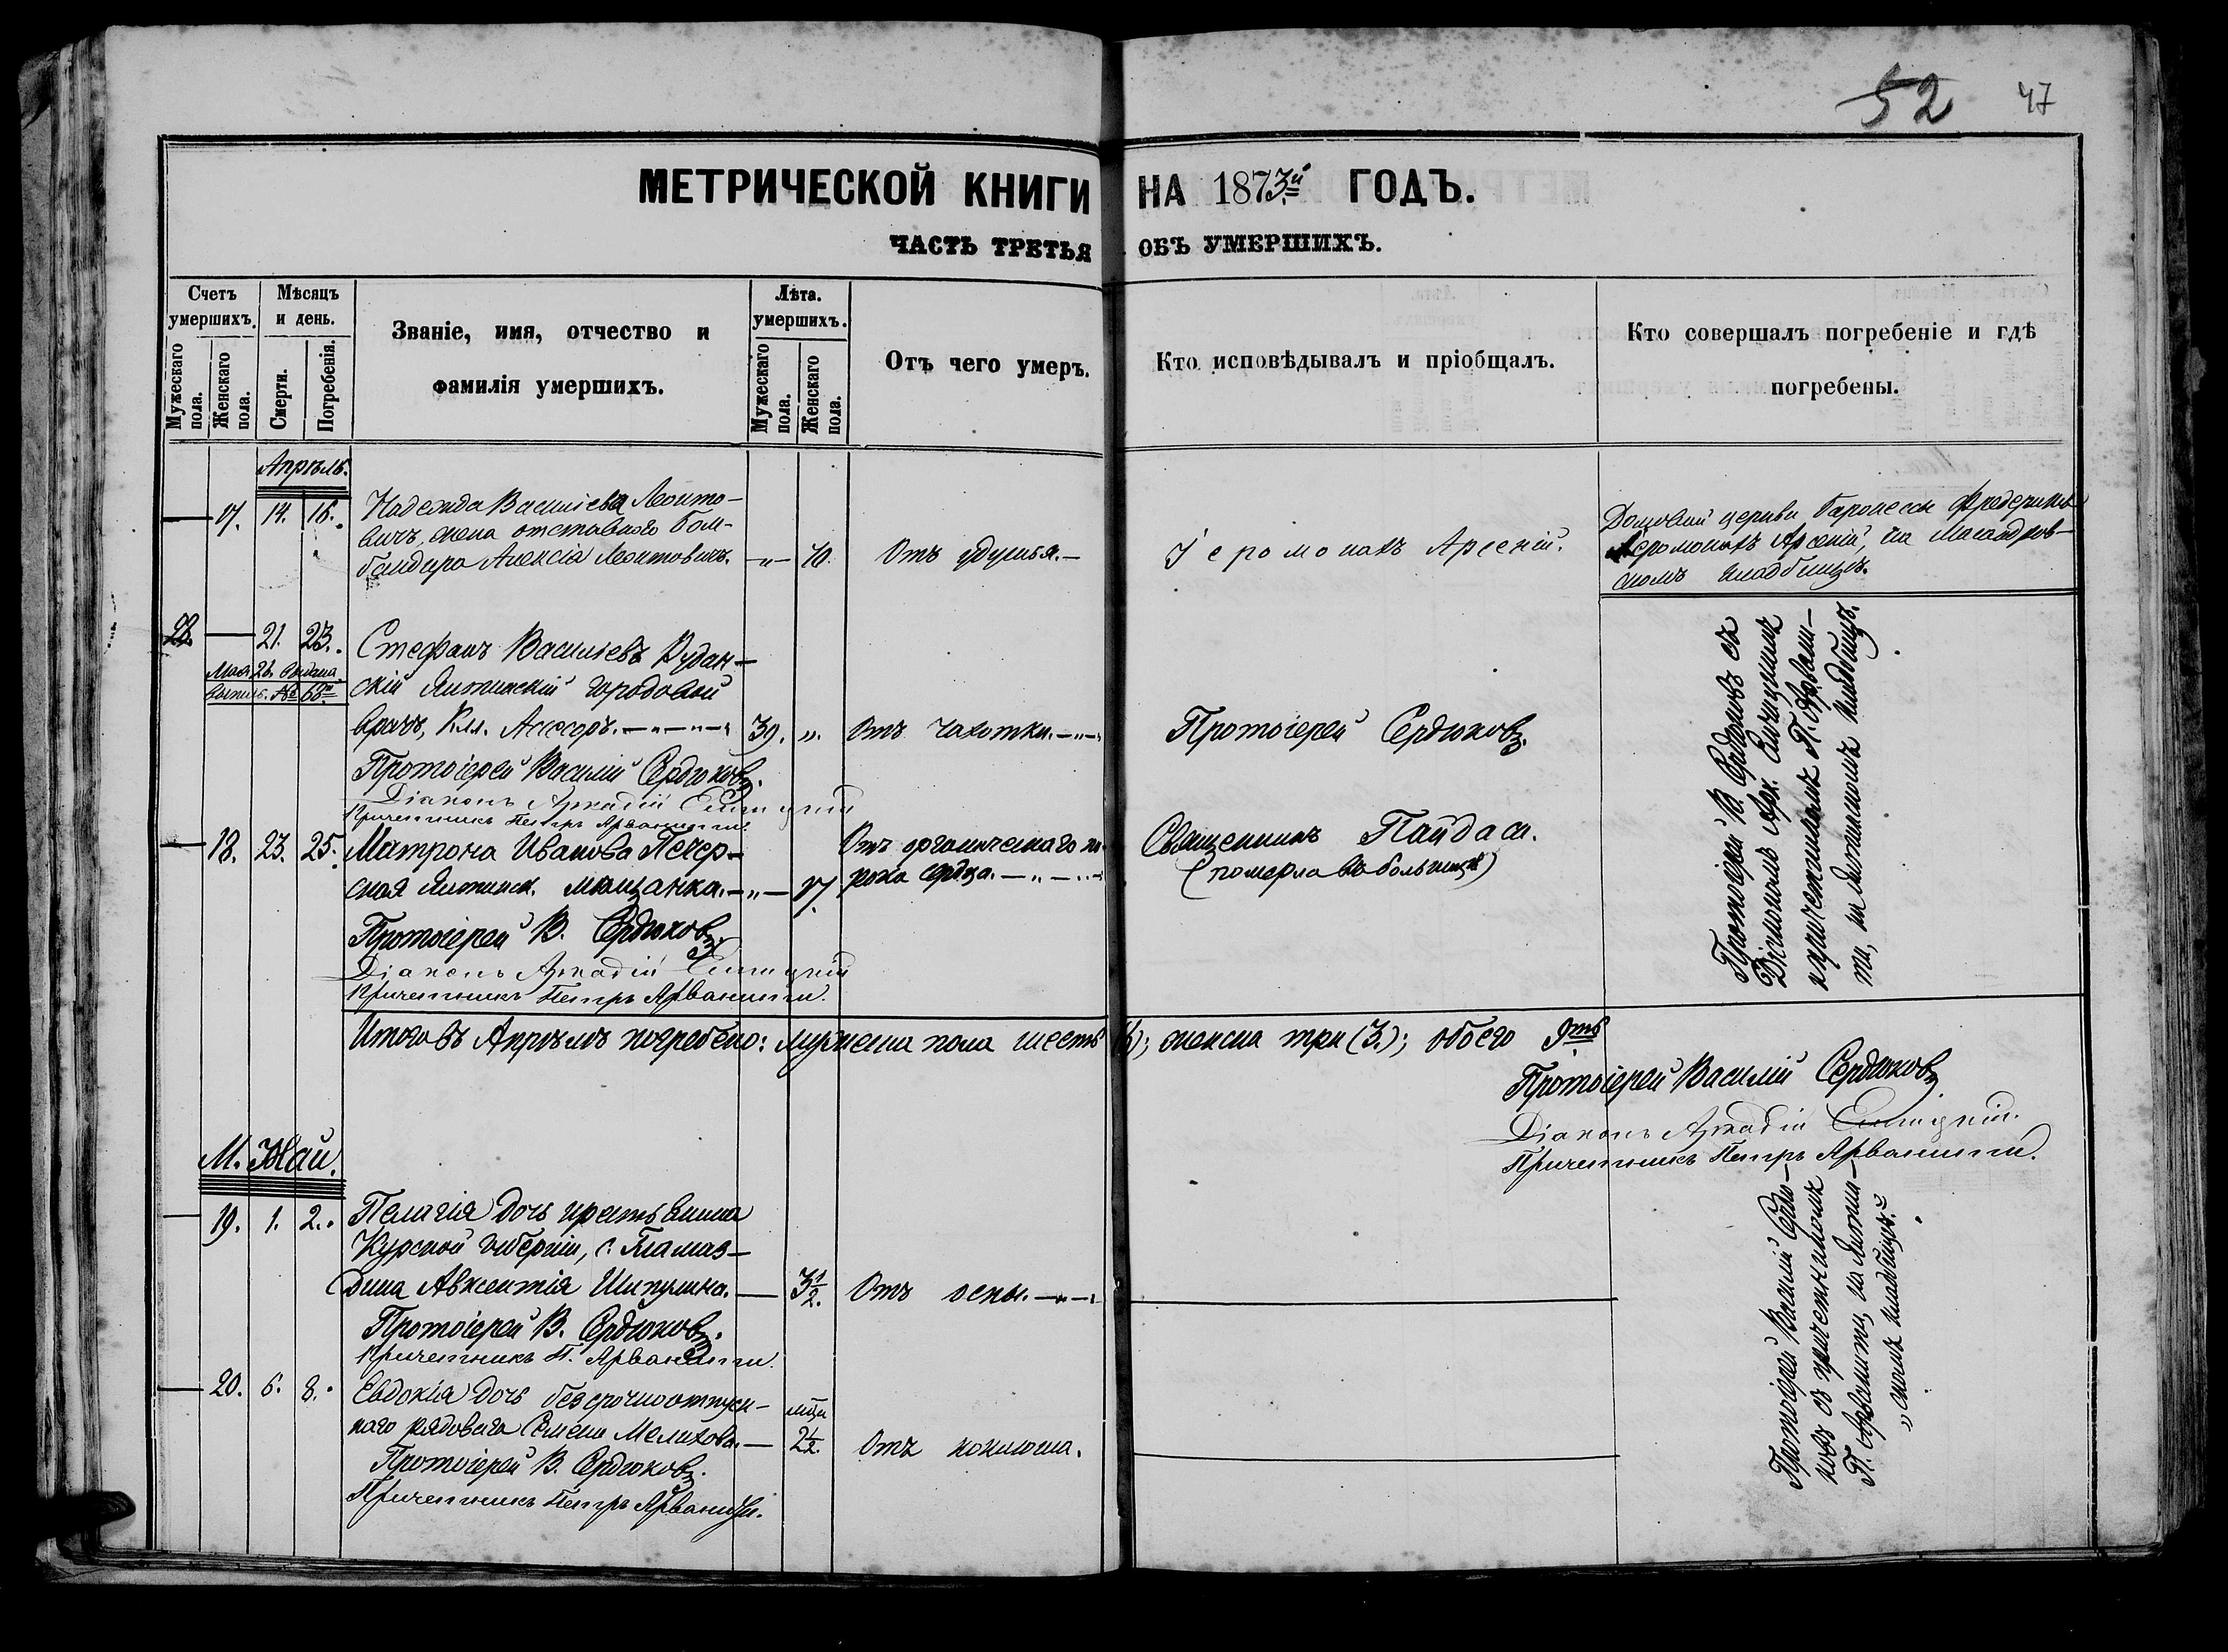 52 47
МЕТРИЧЕСКОЙ КНИГИ НА 1873й ГОДЪ.
ЧАСТЬ ТРЕТЬЯ ОБЪ УМЕРШИХЪ.
Счетъ умершихъ.
Мужескаго пола.
Женскаго пола.
Мѣсяцъ и день.
Смерти.
Погребенія.
Званіе, имя, отчество и
фамилія умершихъ.
Лѣта. умершихъ.
Мужескаго пола.
Женскаго пола.
Отъ чего умеръ.
Кто исповѣдывалъ и пріобщалъ.
Кто совершалъ погребеніе и гдѣ
погребены.
Апрѣль.
— 17. 14. 16. Надежда Васильева Леонто-
вичъ, жена отставнаго Бом-
бандира Алексія Леонтовичъ. —„— 70. Отъ удушья.—
Іеромонахъ Арсеній.
Домовой церкви Баронессы Фредериксъ
Іеромонахъ Арсеній, на Масандров-
скомъ кладбищѣ.
28. — 21. 23. Стефанъ Васильевъ Рудан-
Мая 26. выдана
выпись. № 68й
скій Ялтинскій городовой
врачъ, Кол. Ассесоръ.—„—„— 39. „. Отъ чахотки.—„—
Протоіерей Сердюковъ.
Протоіерей Василій Сердюковъ.
Діаконъ Аркадій
Причетникъ Петръ Арванитти.
— 18. 23. 25. Матрона Иванова Печер-
ская Ялтинск. мѣщанка.—„— 17. Отъ органическаго по-
рока сердца.—„—„—
Священникъ Пайдаси.
(померла въ больницѣ)
Протоіерей В. Сердюковъ.
Діаконъ Аркадій
Причетникъ Петръ Арванитти.
Протоіерей В. Сердюковъ съ
Діакономъ Арк.
и причетникомъ П. Арванит-
ти, на Ялтинскомъ кладбищѣ.
Итого въ Апрѣлѣ погребено: мужеска пола шесть (6); женска три (3.); обоего 9ть
Протоіерей Василій Сердюковъ
Діаконъ Аркадій
Причетникъ Петръ Арванитти.
М. Май.
— 19. 1. 2. Пелагія дочь крестьянина
Курской губерніи, с.
Авксентія Шипулина.— 3½. Отъ оспы.—„—
Протоіерей В. Сердюковъ.
Причетникъ П. Арванитти.
— 20. 6. 8. Евдокія дочь безсрочноотпуск-
наго рядоваго Семена Мелихова.— мѣца 2½. Отъ коклюша.
Протоіерей В. Сердюковъ.
Причетникъ Петръ Арванитти.
Протоіерей Василій Сердю-
ковъ съ причетникомъ
П. Арванитти, на Ялтин-
„скомъ кладбищѣ.„